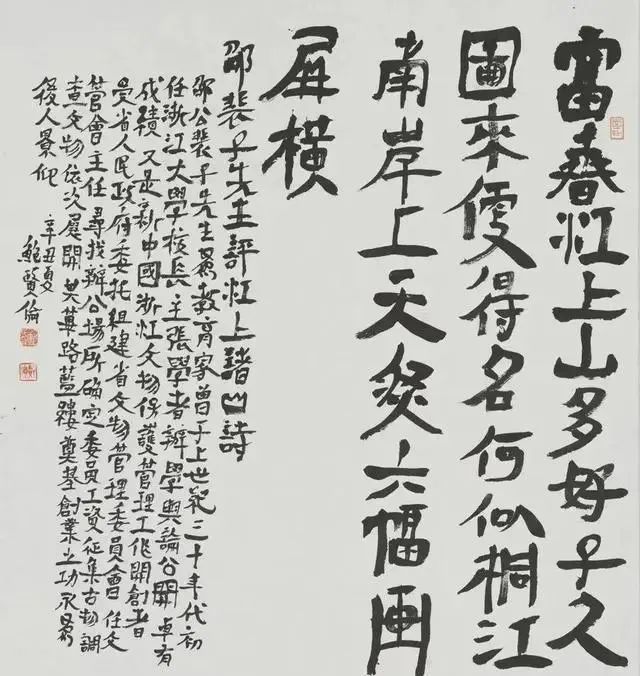 富春江上山多好子久
圖來便得名何似桐江
南岸上天然六幅画
屏橫
邵裴子先生評江上諸山詩
邵公裴子先生為教育家曾于上世紀三十年代初
任浙江大學校長主張學者辦學輿論公開卓有
成績又是新中國浙江文物保護管理工作開創者
受省人民政府委托組建省文物管理委員會任文
管會主任尋找辦公場所確定委員工資征集古物調
查文物依次展開路藍縷奠基創業之功永為
後人景仰
辛丑夏
鮑賢倫